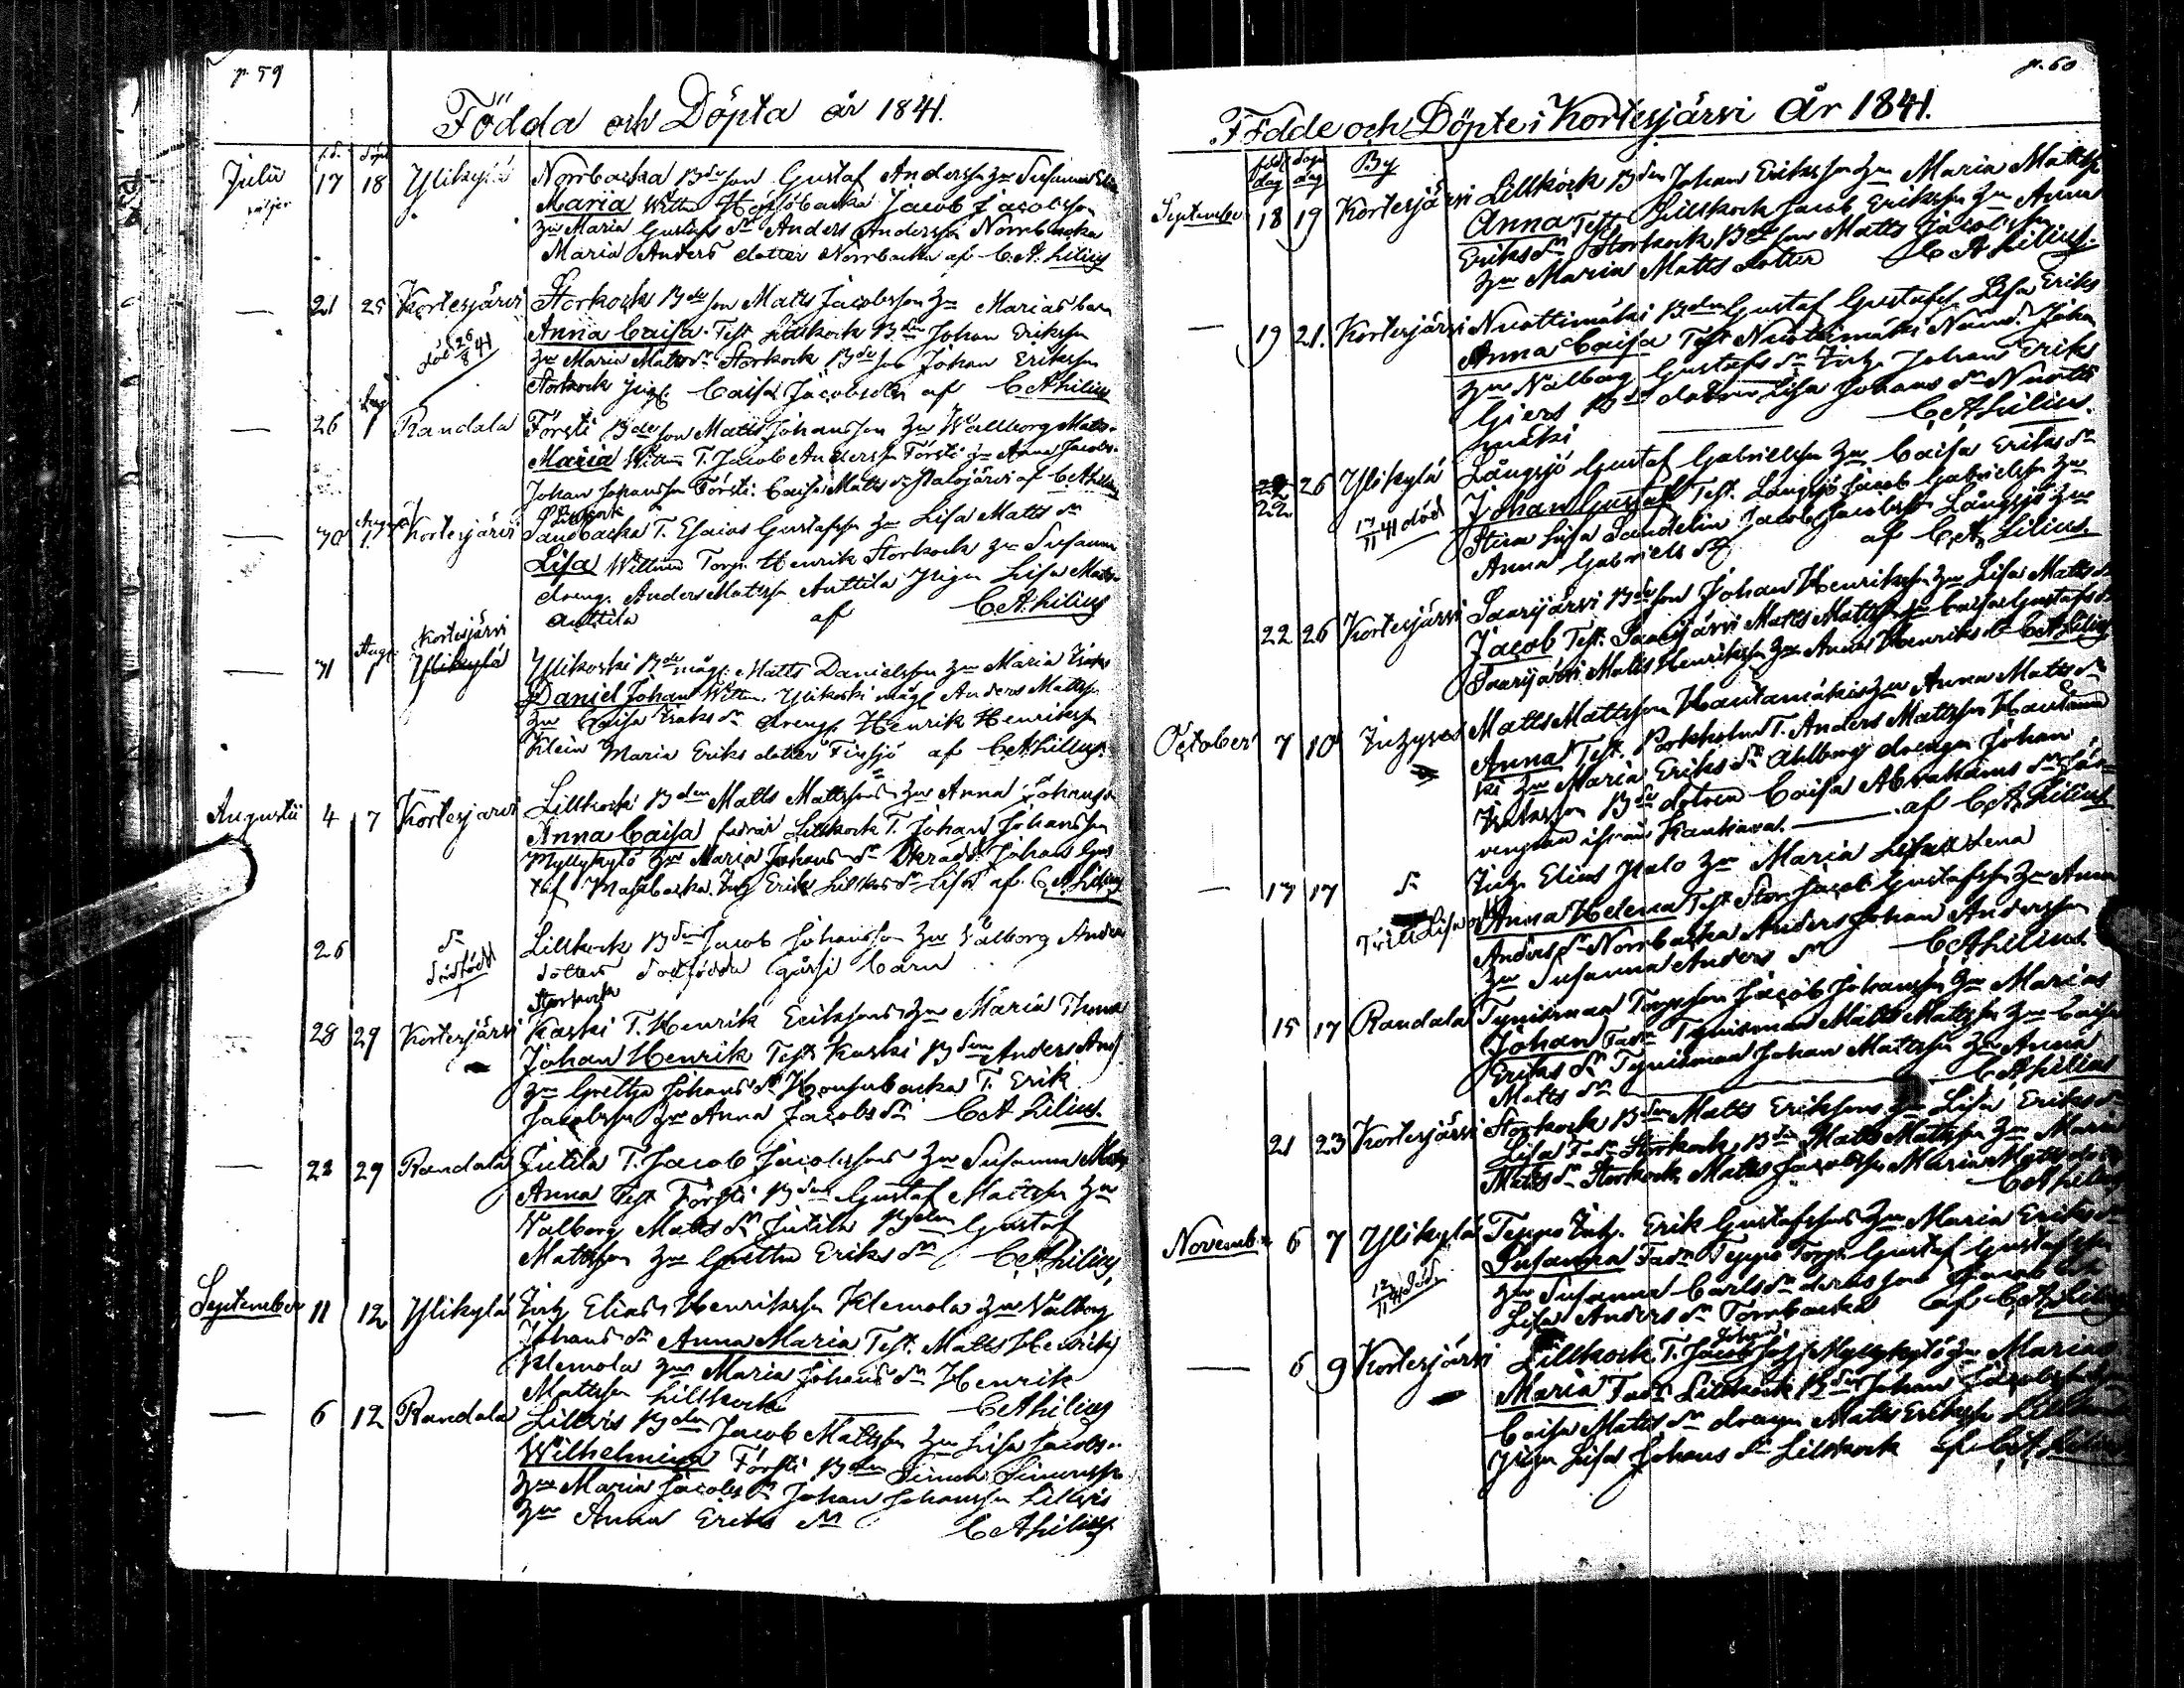 p. 59
Födda och Döpta år 1841.
f.d. döpt
Julii 17 18 Ylikylä Norrbacka Bde son Gustaf Anderss hu Susanna
Maria Wittn Högsöbacka Jacob Jacobsson
hu Maria Gustafs dr Anders Anderss Norrbacka
Maria Anders dotter Norrbacka af C.A. Lilius
— 21 25 Kortesjärvi Storkock Bde son Matts Jacobsson hu Marias barn
död 26/8 41 Anna Caisa Test Lillkock Bdn Johan Eriksson
hu Maria Matts dr Storkock Bde son Johan Eriksson
Storkock pig. Caisa Jacobsdtr af CALilius
— 26 Aug 1 Randala Försti Bde son Matts Johansson hu Wallborg Matts
Maria Wittn T. Jacob Anderss Försti hu Anna Jacobs
Johan Johansson Försti Caisa Matts dr Palojärvi af CALilius
— 30 Augusti 1. Kortesjärvi Lillkock
Sandbacka T. Esaias Gustafss hu Lisa Matts dr
Lisa Wittnen Torp. Henrik Storkock hu Susanna
dreng. Anders Matsson Anttila pigan Lisa Matts
Anttila af CALilius
— 31 Aug 1 Kortesjärvi Ylikylä Ylikoski Bde måg. Matts Danielsson hu Maria Isaks
Daniel Johan Wittn. Ylikoski måg Anders Mattss
hu Caisa Isaks dr dreng Henrik Henrikss
Klein Maria Eriks dotter Finsjö af CALilius
Augustii 4 7 Kortesjärvi Lillkock Bden Matts Mattssons hu Anna Johans
Anna Caisa Lillkock T. Johan Johansson
Myllykytö hu Maria Johans dr Johan Gus
taf Masabacka Inh Erik Lillkock Lisa af CALilius
26 dr
dödfödd Lillkock Bden Jacob Johansson hu Valborg Anders
dotters dödfödda gåsse barn
28 29 Kortesjärvi Storkock
Kaski T. Henrik Erikssons hu Maria Thoma
Johan Henrik Test Kaski Bden Anders And
hu Gretha Johans dr T. Erik
Jacobsson hu Anna Jacobs dr CALilius.
— 22 29 Randala Jutila T. Jacob Jacobssons hu Susanna Matts
Anna Test Försti Bden Gustaf Mattss hu
Valborg Matts dr Jutila Bden Gustaf
Mattsson hu Gretha Eriks dr CALilius
September 11 12 Ylikylä Inh Elias Henrikson Klemola hu Valborg
Johans dr Anna Maria Test. Matts Henriks
Klemola hu Maria Johans dr Henrik
Mattsson Lillkock CALilius
— 6 12 Randala Lillvis Bden Jacob Mattss hu Lisa Jacobs
Wilhelmina Försti Bden Simon Simonss
hu Maria Jacobs dr Johan Johansson Lillvis
hu Anna Eriks dr CALilius
p. 60
Födde och Döpte i Kortesjärvi år 1841.
född dag Döpn dag By
September 18 19 Kortesjärvi Lillkock Bden Johan Eriksson hu Maria Matts
Anna Test Lillkock Jacob Eriksson hu Anna
Eriks dr Storkock Bde son Matts Jacobsson
hu Maria Matts dotter CALilius
— 19 21. Kortesjärvi Nuottimäki Bden Gustaf Gustafs Lisa Eriks
Anna Caisa Test Nuottimäki Nämd. Johan
hu Valborg Gustafs dr Inh Johan Erik
Giers Bde dottren Lisa Johans dr Nuotti
mäki CALilius.
22 26 Ylikylä Långsjö Gustaf Gabrielsson hu Caisa Eriks dr
17/11 41 död Johan Gustaf Test. Långsjö Jacob Gabrielsson hu
Stina Lisa Sandelin Jacob Jacobsson Långsjö hu
Anna Gabriels dr af C.A. Lilius.
22 26 Kortesjärvi Saarijärvi Bde son Johan Henriksson hu Lisa Matts dr
Jacob Test. Saarijärvi Matts Mattss hu Caisa Gustafs dr
Saarijärvi Matts Henriksson hu Anna Henriks dr CALilius
October 7 10 Inhyses Matts Mattsson Hautamäki hu Anna Matts dr
Anna Test. Porkholm T. Anders Mattsson Hautamä
ki hu Maria Eriks dr Ahlberg drengen Johan
Isaksson Bde dottren Caisa Abrahams dr
ifrån Kauhava. af C.A. Lilius
— 17 17 dr Inh. Elias Palo hu Maria Lisa Lena
Tvill Lisa Anna Helena Test Stor Jacob Gustafsson hu Anna
Anders dr Norrbacka Anders Johan Andersson
hu Susanna Anders dr CALilius
15 17 Randala Tynismaa Torpson Jacob Johansson hu Marias
Johan Fadr Tynismaa Matts Mattss hu Caisa
Eriks dr Tynismaa Johan Mattss hu Anna
Matts dr CALilius
21 23 Kortesjärvi Storkock Bden Matts Erikssons hu Lisa Eriks dr
Lisa Fadr Storkock Bden Matts Mattss hu Maria
Matts dr Storkock Matts Jacobss Maria Matts dotter
CALilius
November 6 7 Ylikylä Teppo Inh. Erik Gustafssons hu Maria Eriks dr
12/11 41 död Susanna Fadr Teppo Torp. Gustaf Gustafsson
hu Susanna Carls dr deras son Jacob
Lisa Anders dr af CALilius
— 6 9 Kortesjärvi Lillkock T. Jacob Johan Myllykytö hu Marias
Maria Fadr Lillkock Bde Johan Jacobss hu
Caisa Matts dr drengen Matts Eriksson Lillkock
pigan Lisa Johans dr Lillkock af CALilius